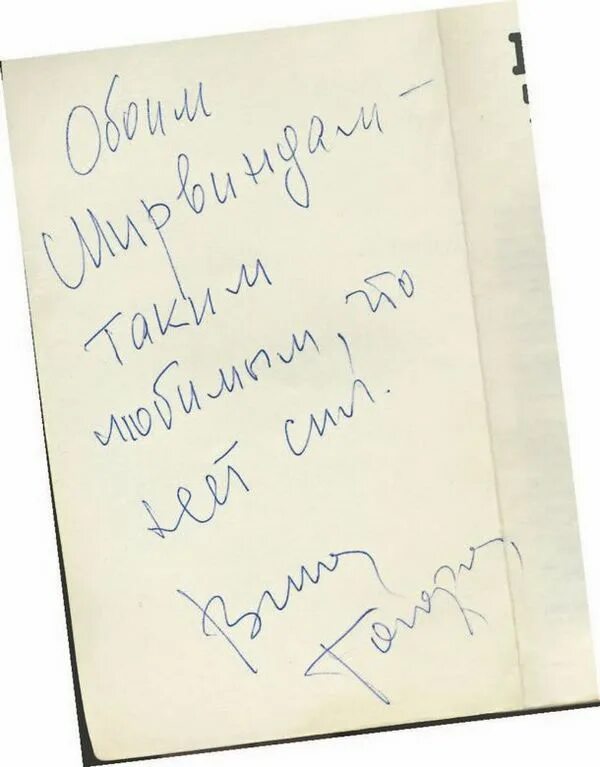 Обоим
Мирвиндам –
таким
любимым, что
нет сил.